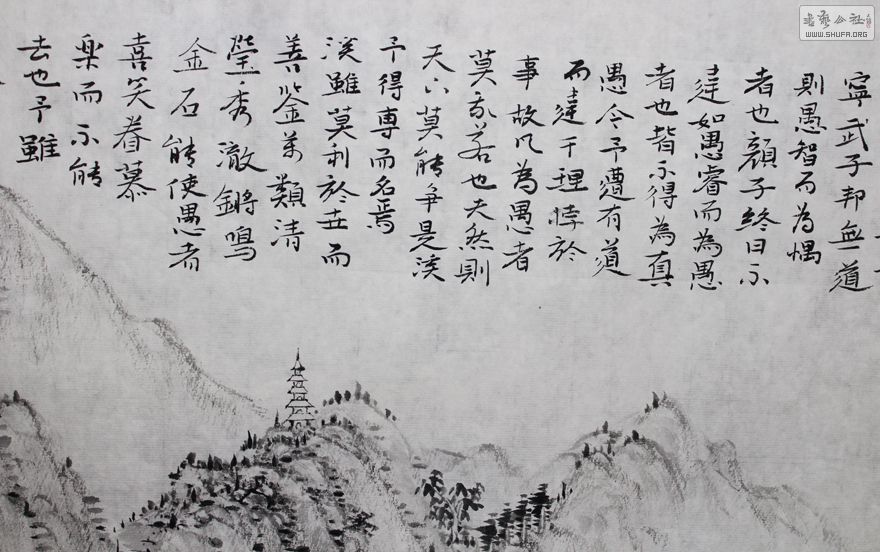 寧武子邦無道
則愚智而為愚
者也顏子終日不
違如愚睿而為愚
者也皆不得為真
愚今予遭有道
而違于理悖於
事故凡為愚者
莫我若也夫然則
天下莫能爭是溪
予得專而名焉
溪雖莫利於世而
善鉴萬類清
瑩秀澈鏘鳴
金石能使愚者
喜笑眷慕
樂而不能
去也予雖
書藝公社
WWW.SHUFA.ORG